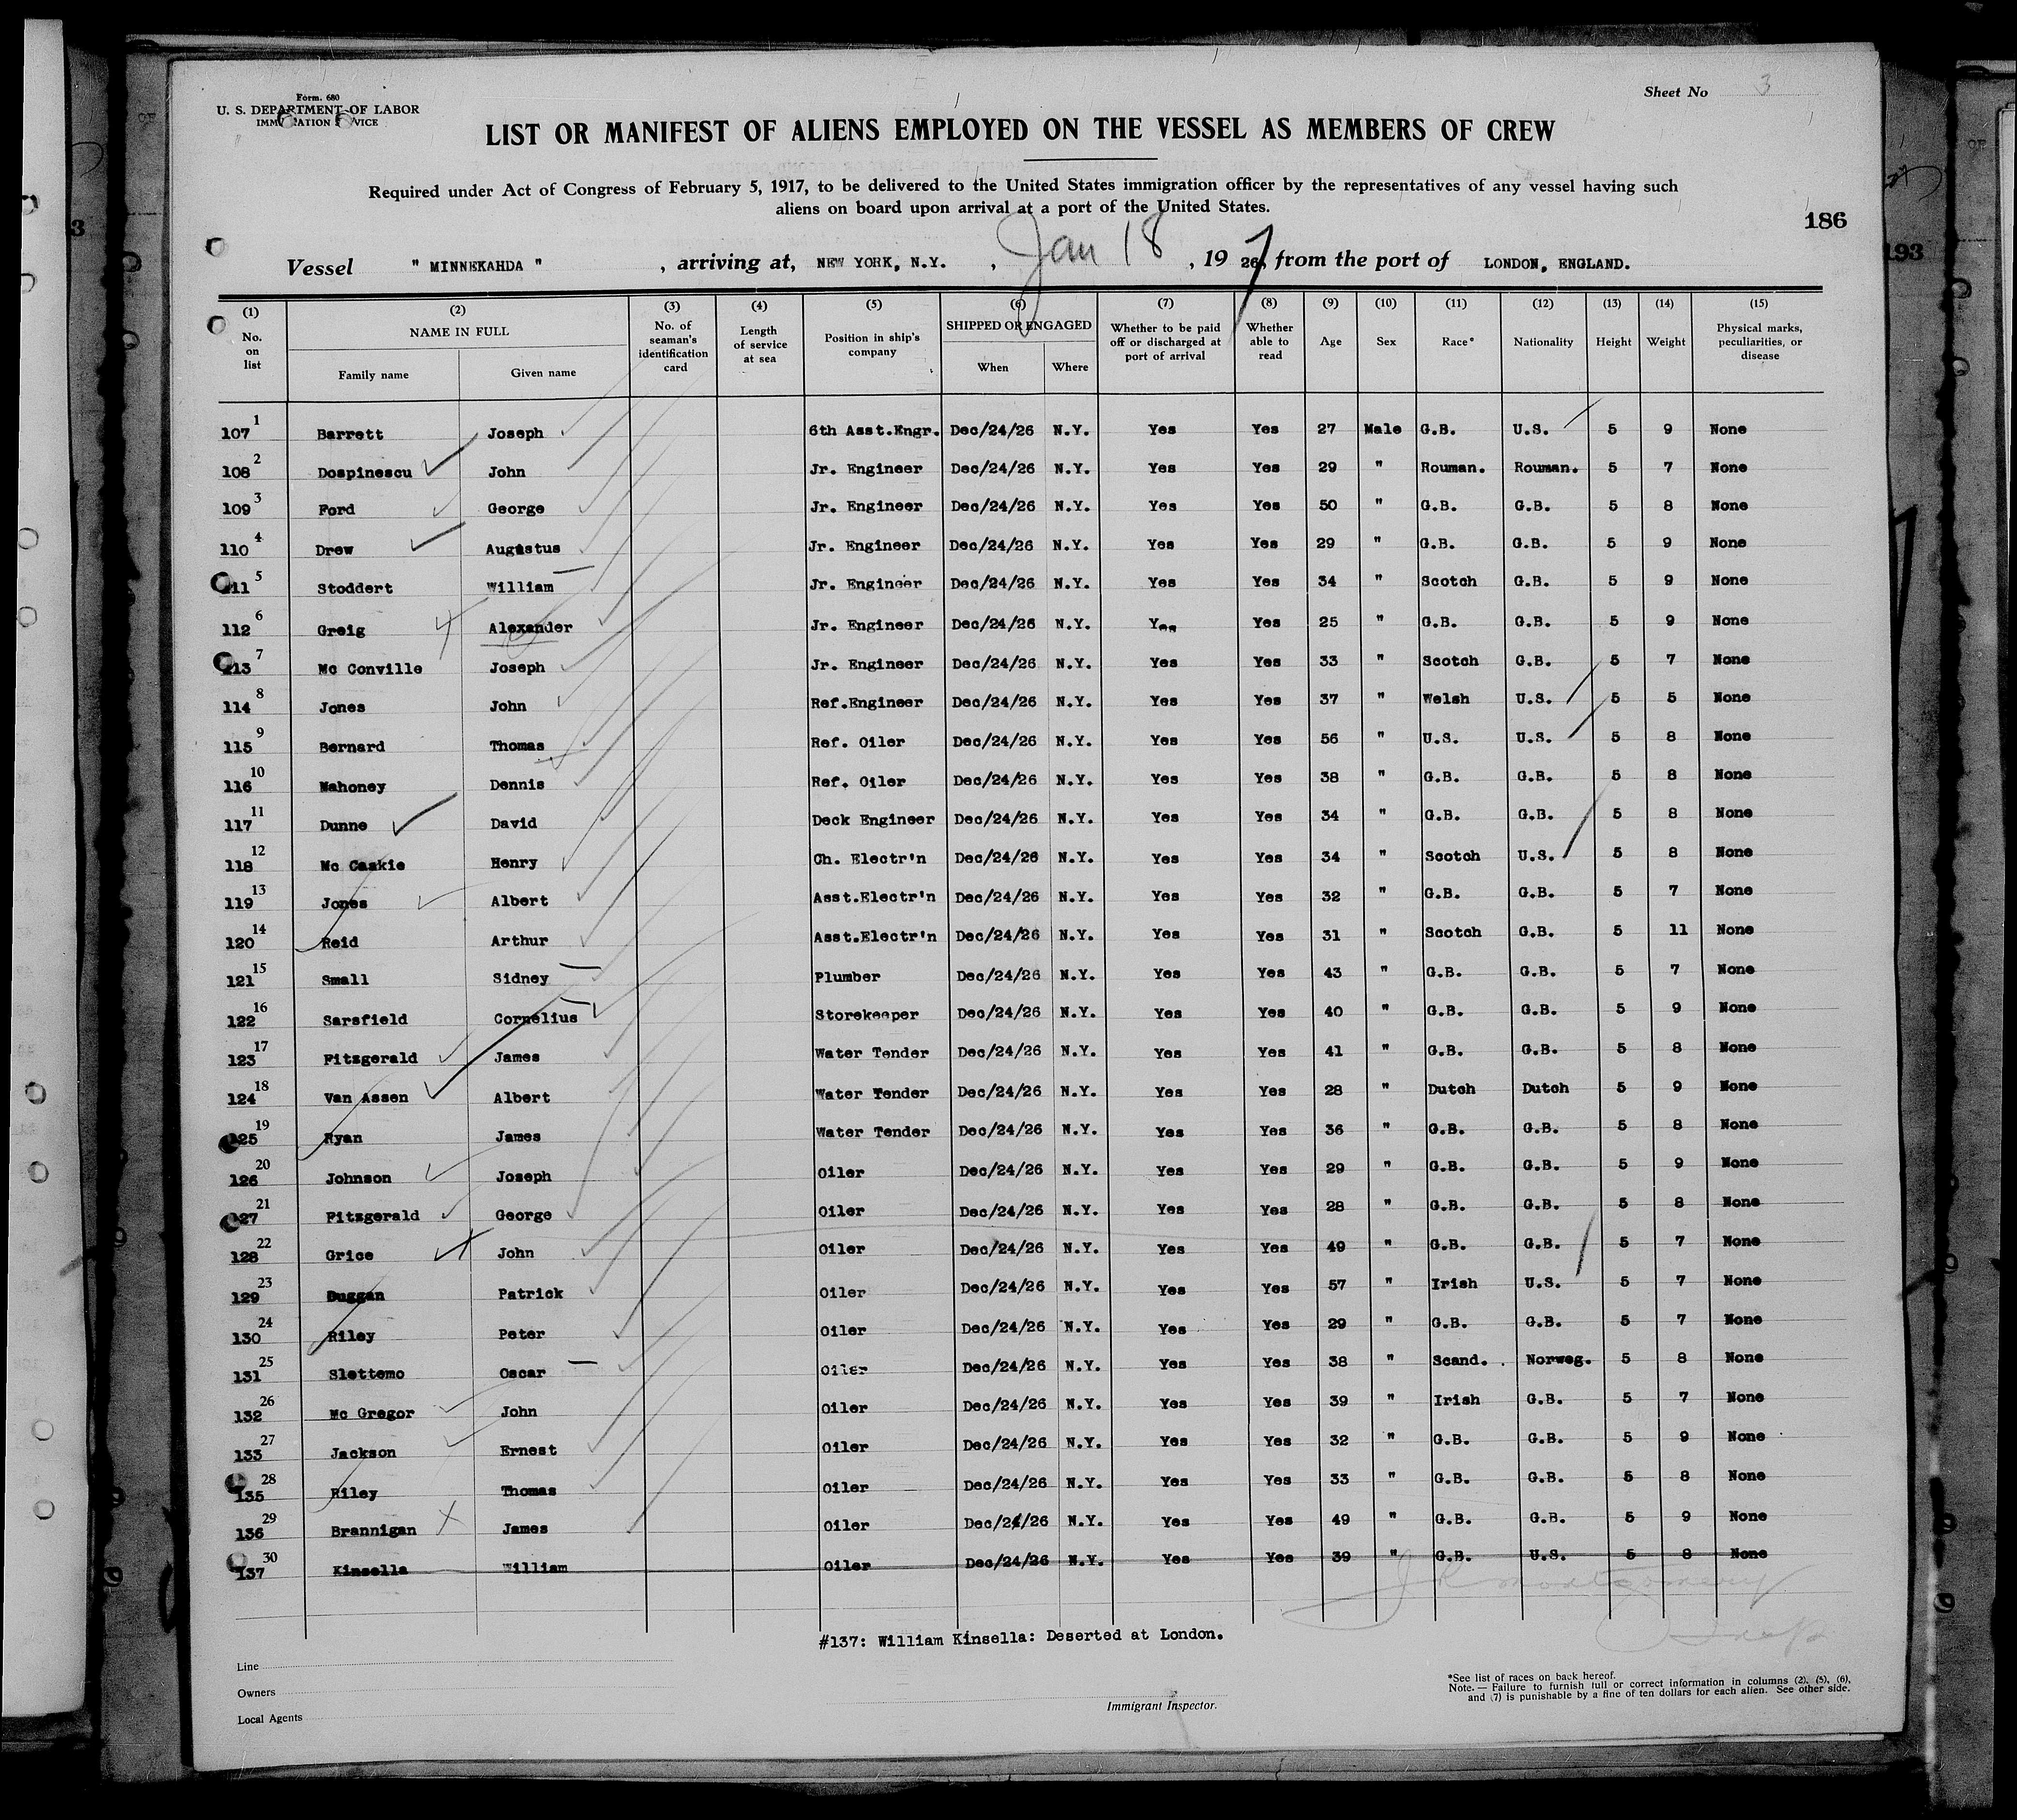 Form. 680
U. S. DEPARTMENT OF LABOR
Sheet No 3
LIST OR MANIFEST OF ALIENS EMPLOYED ON THE VESSEL AS MEMBERS OF CREW
Required under Act of Congress of February 5, 1917, to be delivered to the United States immigration officer by the representatives of any vessel having such
aliens on board upon arrival at a port of the United States.
186
Vessel " MINNEKAHDA " , arriving at, NEW YORK, N.Y. , Jan 18 , 19 26, 7 from the port of LONDON, ENGLAND.
(1) (2) (3) (4) (5) (6) (7) (8) (9) (10) (11) (12) (13) (14) (15)
No. on list NAME IN FULL Family name Given name No. of seaman's identification card Length of service at sea Position in ship's company SHIPPED OR ENGAGED When Where Whether to be paid off or discharged at port of arrival Whether able to read Age Sex Race* Nationality Height Weight Physical marks, peculiarities, or disease
107 1 Barrett Joseph 6th Asst.Engr. Dec/24/26 N.Y. Yes Yes 27 Male G.B. U.S. 5 9 None
108 2 Dospinescu John Jr. Engineer Dec/24/26 N.Y. Yes Yes 29 " Rouman. Rouman. 5 7 None
109 3 Ford George Jr. Engineer Dec/24/26 N.Y. Yes Yes 50 " G.B. G.B. 5 8 None
110 4 Drew Augustus Jr. Engineer Dec/24/26 N.Y. Yes Yes 29 " G.B. G.B. 5 9 None
111 5 Stoddert William Jr. Engineer Dec/24/26 N.Y. Yes Yes 34 " Scotch G.B. 5 9 None
112 6 Greig Alexander Jr. Engineer Dec/24/26 N.Y. Yes Yes 25 " G.B. G.B. 5 9 None
113 7 Mc Conville Joseph Jr. Engineer Dec/24/26 N.Y. Yes Yes 33 " Scotch G.B. 5 7 None
114 8 Jones John Ref.Engineer Dec/24/26 N.Y. Yes Yes 37 " Welsh U.S. 5 5 None
115 9 Bernard Thomas Ref. Oiler Dec/24/26 N.Y. Yes Yes 56 " U.S. U.S. 5 8 None
116 10 Mahoney Dennis Ref. Oiler Dec/24/26 N.Y. Yes Yes 38 " G.B. G.B. 5 8 None
117 11 Dunne David Deck Engineer Dec/24/26 N.Y. Yes Yes 34 " G.B. G.B. 5 8 None
118 12 Mc Caskie Henry Ch. Electr'n Dec/24/26 N.Y. Yes Yes 34 " Scotch U.S. 5 8 None
119 13 Jones Albert Asst.Electr'n Dec/24/26 N.Y. Yes Yes 32 " G.B. G.B. 5 7 None
120 14 Reid Arthur Asst.Electr'n Dec/24/26 N.Y. Yes Yes 31 " Scotch G.B. 5 11 None
121 15 Small Sidney Plumber Dec/24/26 N.Y. Yes Yes 43 " G.B. G.B. 5 7 None
122 16 Sarsfield Cornelius Storekeeper Dec/24/26 N.Y. Yes Yes 40 " G.B. G.B. 5 9 None
123 17 Fitzgerald James Water Tender Dec/24/26 N.Y. Yes Yes 41 " G.B. G.B. 5 8 None
124 18 Van Assen Albert Water Tender Dec/24/26 N.Y. Yes Yes 28 " Dutch Dutch 5 9 None
125 19 Ryan James Water Tender Dec/24/26 N.Y. Yes Yes 36 " G.B. G.B. 5 8 None
126 20 Johnson Joseph Oiler Dec/24/26 N.Y. Yes Yes 29 " G.B. G.B. 5 9 None
127 21 Fitzgerald George Oiler Dec/24/26 N.Y. Yes Yes 28 " G.B. G.B. 5 8 None
128 22 Grice John Oiler Dec/24/26 N.Y. Yes Yes 49 " G.B. G.B. 5 7 None
129 23 Duggan Patrick Oiler Dec/24/26 N.Y. Yes Yes 57 " Irish U.S. 5 7 None
130 24 Riley Peter Oiler Dec/24/26 N.Y. Yes Yes 29 " G.B. G.B. 5 7 None
131 25 Slettemo Oscar Oiler Dec/24/26 N.Y. Yes Yes 38 " Scand. Norweg. 5 8 None
132 26 Mc Gregor John Oiler Dec/24/26 N.Y. Yes Yes 39 " Irish G.B. 5 7 None
133 27 Jackson Ernest Oiler Dec/24/26 N.Y. Yes Yes 32 " G.B. G.B. 5 9 None
135 28 Riley Thomas Oiler Dec/24/26 N.Y. Yes Yes 33 " G.B. G.B. 5 8 None
136 29 Brannigan James Oiler Dec/24/26 N.Y. Yes Yes 49 " G.B. G.B. 5 9 None
137 30 Kinsella William Oiler Dec/24/26 N.Y. Yes Yes 39 " G.B. U.S. 5 8 None
J R Montgomery
#137: William Kinsella: Deserted at London.
Line
Owners
Local Agents
Immigrant Inspector.
*See list of races on back hereof.
Note.— Failure to furnish full or correct information in columns (2), (5), (6),
and (7) is punishable by a fine of ten dollars for each alien. See other side.
193